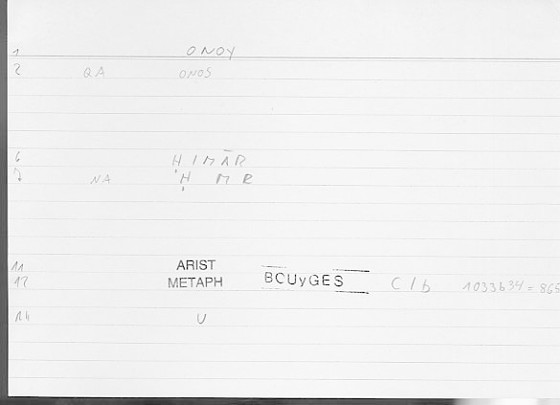 1 ONOY
2 QA ONOS
6 ḤIMĀR
7 NA Ḥ M R
11 ARIST
12 METAPH BCUyGES C1b 1033b34=865
14 U